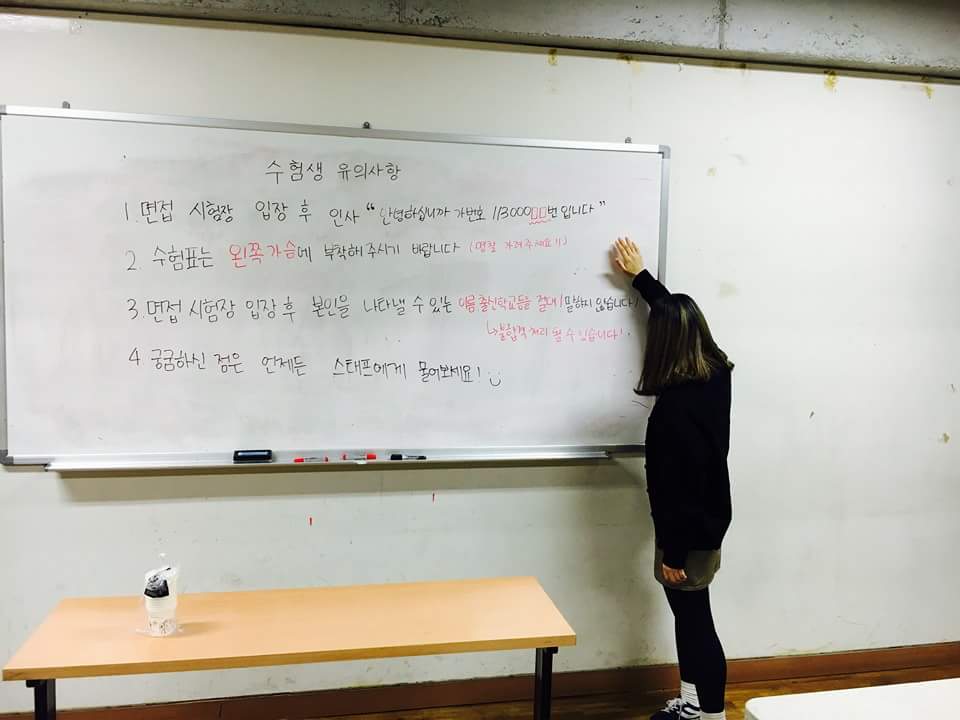 수험생 유의사항
1. 면접 시험장 입장 후 인사 “안녕하십니까 가번호 113000□□번 입니다”
2. 수험표는 왼쪽가슴에 부착해주시기 바랍니다 (명찰 가려주세요!!)
3. 면접 시험장 입장 후 본인을 나타낼 수 있는 이름, 출신학교등을 절대! 말하지 않습니다!
↳불합격 처리 될 수 있습니다!
4. 궁금하신 점은 언제든 스태프에게 물어보세요!